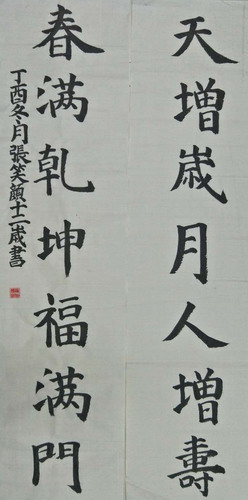 天增歲月人增壽
春满乾坤福满門
丁酉冬月張笑顏十二歲書